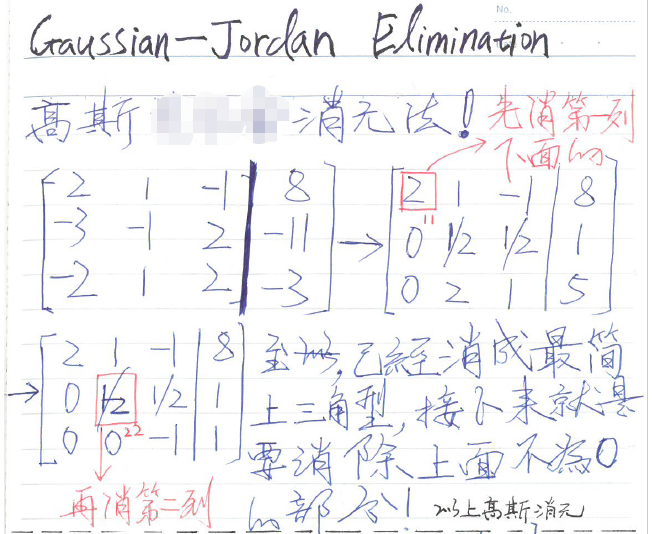 No.
Gaussian-Jordan Elimination
高斯 消元法! 先消第一列
下面的
2 1 -1 8 → 2 1 -1 8
-3 -1 2 -11 0 1/2 1/2 1
-2 1 2 -3 0 2 1 5
11
→ 2 1 -1 8
0 1/2 1/2 1
0 0 -1 1
22
再消第二列
至此,已經消成最简
上三角型,接下来就是
要消除上面不為0
的部分! 以上高斯消元